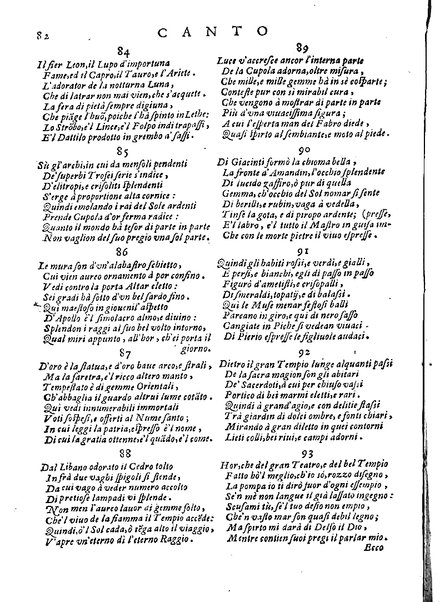 82
CANTO
84
Il fier Leon, il Lupo d'importuna
Fame, ed il Capro, il Tauro, e l'Ariete.
L'adorator de la notturna Luna,
Che di latrar non mai vien, che s'acquete.
La fera di pietà sempre digiuna,
Che piāge l'huō, poiche l'hà spinto in Lethe:
Lo Strōbo, e'l Lince, e'l Folpo indi trapassi,
E'l Dattilo prodotto in grembo a' sassi.
85
Sù gl'archi, in cui da mensoli pendenti
De' superbi Trofei serie s'indice,
D'elitropi, e crisoliti splendenti
S'erge à proportione alta cornice:
Quindi emolando i rai del Sole ardenti
Prende Cupola d'or forma radice:
Quanto il mondo hà tesor di parte in parte
Non vaglion del suo pregio vna sol parte.
86
Le mura son d'vn'alabastro schietto,
Cui vien aureo ornamento à por confino.
Vedi contro la porta Altar eletto:
Sei gradi hà sotto d'vn bel sardo fino.
Qui maestoso in giouenil aspetto
D'Apollo è'l simolacro almo, e diuino:
Splendon i raggi al suo bel volto intorno,
Qual miri appunto, all'hor, ch'ei porta il
giorno.
87
D'oro è la statua, e d'oro haue arco, e strali,
Ma la faretra, e'l ricco altero manto,
Tempestato è di gemme Orientali,
Ch'abbaglia il guardo altrui lume cotāto.
Qui vedi innumerabili immortali
Voti sospesi, e offerti al Nume santo;
In cui leggi la patria, espresso è'l nome,
Di cui la gratia ottenne, e'l quādo, e'l come.
88
Dal Libano odorato il Cedro tolto
Infrà due vaghi spigoli si stende,
Da cui vago à veder numero accolto
Di pretiose lampadi vi splende.
Non men l'aureo lauor di gemme folto,
Che'l viuo de la fiamma il Tempio accēde:
Quindi, ò'l Sol cada, ò tēga alto il viaggio,
V'apre vn'eterno dì l'eterno Raggio.
89
Luce v'accresce ancor l'interna parte
De la Cupola adorna, oltre misura,
Che mille, e mille gemme hà in sè cosparte;
Conteste pur con sì mirabil cura,
Che vengono à mostrar di parte in parte
Più d'vna viuacissima figura;
A cui l'esperta man del Fabro diede,
Quasi spirto al sembiante, e moto al piede.
90
Di Giacinti formò la chioma bella,
La fronte d'Amandin, l'occhio splendente
Di lucido zaffiro, ò pur di quella
Gemma, ch'occhio del Sol nomar si sente
Di berilli, e rubin, vaga à vedella,
Tinse la gota, e di piropo ardente; (presse,
E'l labro, e'l tutto il Mastro in guisa im-
Che con le morte pietre il viuo espresse.
91
Quindi gli habiti rossi, e verdi, e gialli,
E persi, e bianchi, egli di passo in passo
Figurò d'ametisti, e crisopalli,
Di smeraldi, topatij, e di balassi.
Quì le Muse menar festosi balli
Pareano in giro, e quì di nero sasso
Cangiate in Piche si vedean viuaci
Di Pierio espresse le figliuole audaci.
92
Dietro il gran Tempio lunge alquanti passi
De la sacra magion son gli abitari
De' Sacerdoti, à cui per chiuso vassi
Portico di bei marmi eletti, e rari.
Quindi à grand'agio, e con delitie stassi
Trà giardini di dolci ombre, e fonti chiari,
Mirando à gran diletto in quei contorni
Lieti colli, bei riui, e campi adorni.
93
Hor, che del gran Teatro, e del bel Tempio
Fatto hò'l meglio, ch'io sò, rozzo disegno,
La pompa io ti dirò fuor d'ogni essempio,
Se'n mè non langue il già lassato ingegno:
Scusami tù, se'l tuo desio non empio,
Che'n vasto mar son quasi debil legno;
Ma spirto mi darà di Delfo il Dio,
Mentre contien suoi pregi il parlar mio.
Ecco